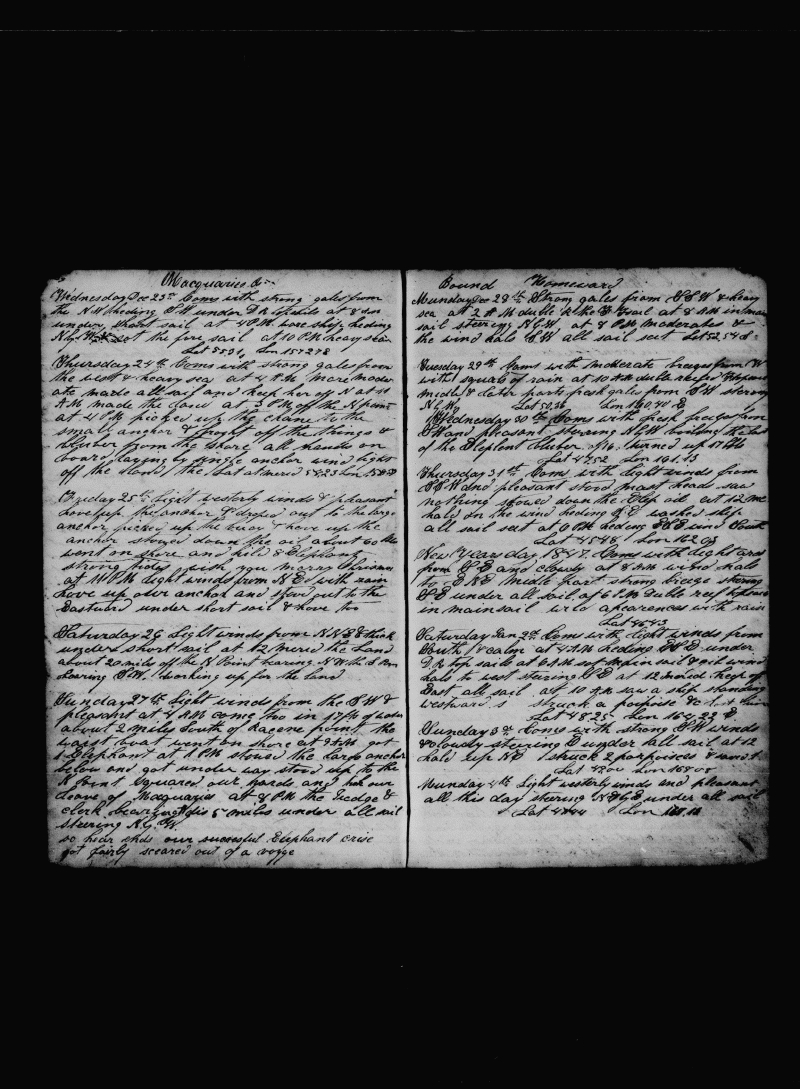 Macquaries &c
Wednesday Dec 23rd Coms with strong gales from
the N W heding S W under D R topsails at 8 AM
under short sail at 4 P.M. wore ship heding
N by W set the fore sail at 10 P.M heavy sea
Lat 5531 Lon 157278
Thursday 24th Coms with strong gales from
the west & heavy sea at 4 A M more moder
ate made all sail and keep her off N at 11
A M made the land at 3 P.M. off the N point
at 4 P M picked up the chane to the
small anchor & brought off the things &
bluber from the shore all hands on
board laying by single anchor wind light
off the land the Lat at merid 5423 Lon
Fryday 25th Light westerly winds & pleasant
hove up the anchor & droped out to the large
anchor picked up the buoy & hove up the
anchor stowed down the oil about 60 bbls
went on shore and kild 8 Elephant
strong tides wish you marry Chrismas
at 11 P M light winds from N E with rain
hove up our anchor and stood out to the
Eastward under short sail & hove too
Saturday 26 Light winds from N N E & thick
under short sail at 12 merid the Land
about 20 miles off the N Point bearing N W the S
bearing S W. working up for the land
Sunday 27th Light winds from the S W &
pleasant at 4 A M come too in 17 fth of water
about 2 miles South of point the
waist boat went on shore at 9 A M got
1 Elephant at 1 P M stowed the large anchor
below and got under way stood up to the
N point Squared our yards and took our
leave of Macquaries at 8 P M the Judge &
clerk bearing dis 5 miles under all sail
steering N. W.
so hear ends our sucsesful Elephant crise
got fairly sceared out of a voyge
Bound Homeward
Munday Dec 28th Strong gales from S S W & heavy
sea at 2 A M duble R the T sail at 8 A M in main
sail steering N W at 8 P M moderates &
the wind hals S W all sail set Lat 52 54 S
Tuesday 29th Coms with moderate breases from W
with squals of rain at 10 A M duble reefed topsails
midle & later parts fresh gales from S W steering
N by W Lat 5038 Lon 160.44 E
Wednesday 30th Coms with fresh breases from
S W and pleasant steering N W boiling the last
of the Elephent bluber of 16. turned up 17 bbls
Lat 4752 Lon 161.13
Thursday 31st Coms with light winds from
S S W and pleasant stood mast heads saw
nothing stowed down the Elep oil at 12 Me
hald on the wind heding S E washed ship
all sail set at 6 P M heding E S E wind South
Lat 4548 Lon 162 03
New Year day 1847. Coms with light ares
from S E and cloudy at 8 A M wind hals
to E N E midle part strong breese steering
S E under all sail at 6 P.M. duble reef topsails
in mainsail wild apearences with rain
Lat 4643
Saturday Jan 2nd Coms with light winds from
South & calm at 4 A M heding E S E under
D. R top sails at 6 A M set main sail & gib wind
hals to west steering S E at 12 merid keep off
East all sail at 10 A M saw a ship standing
westward s struck a porpoise & lost him
Lat 48 25 Lon 164 22 E.
Sunday 3rd Coms with strong S W winds
& cloudy steering E under all sail at 12
hald up N E struck 2 porpoises & saved 1
Lat 4700 Lon 168 00
Munday 4th Light westerly winds and pleasant
all this day steering N E by E under all sail
Lat 4544 Lon